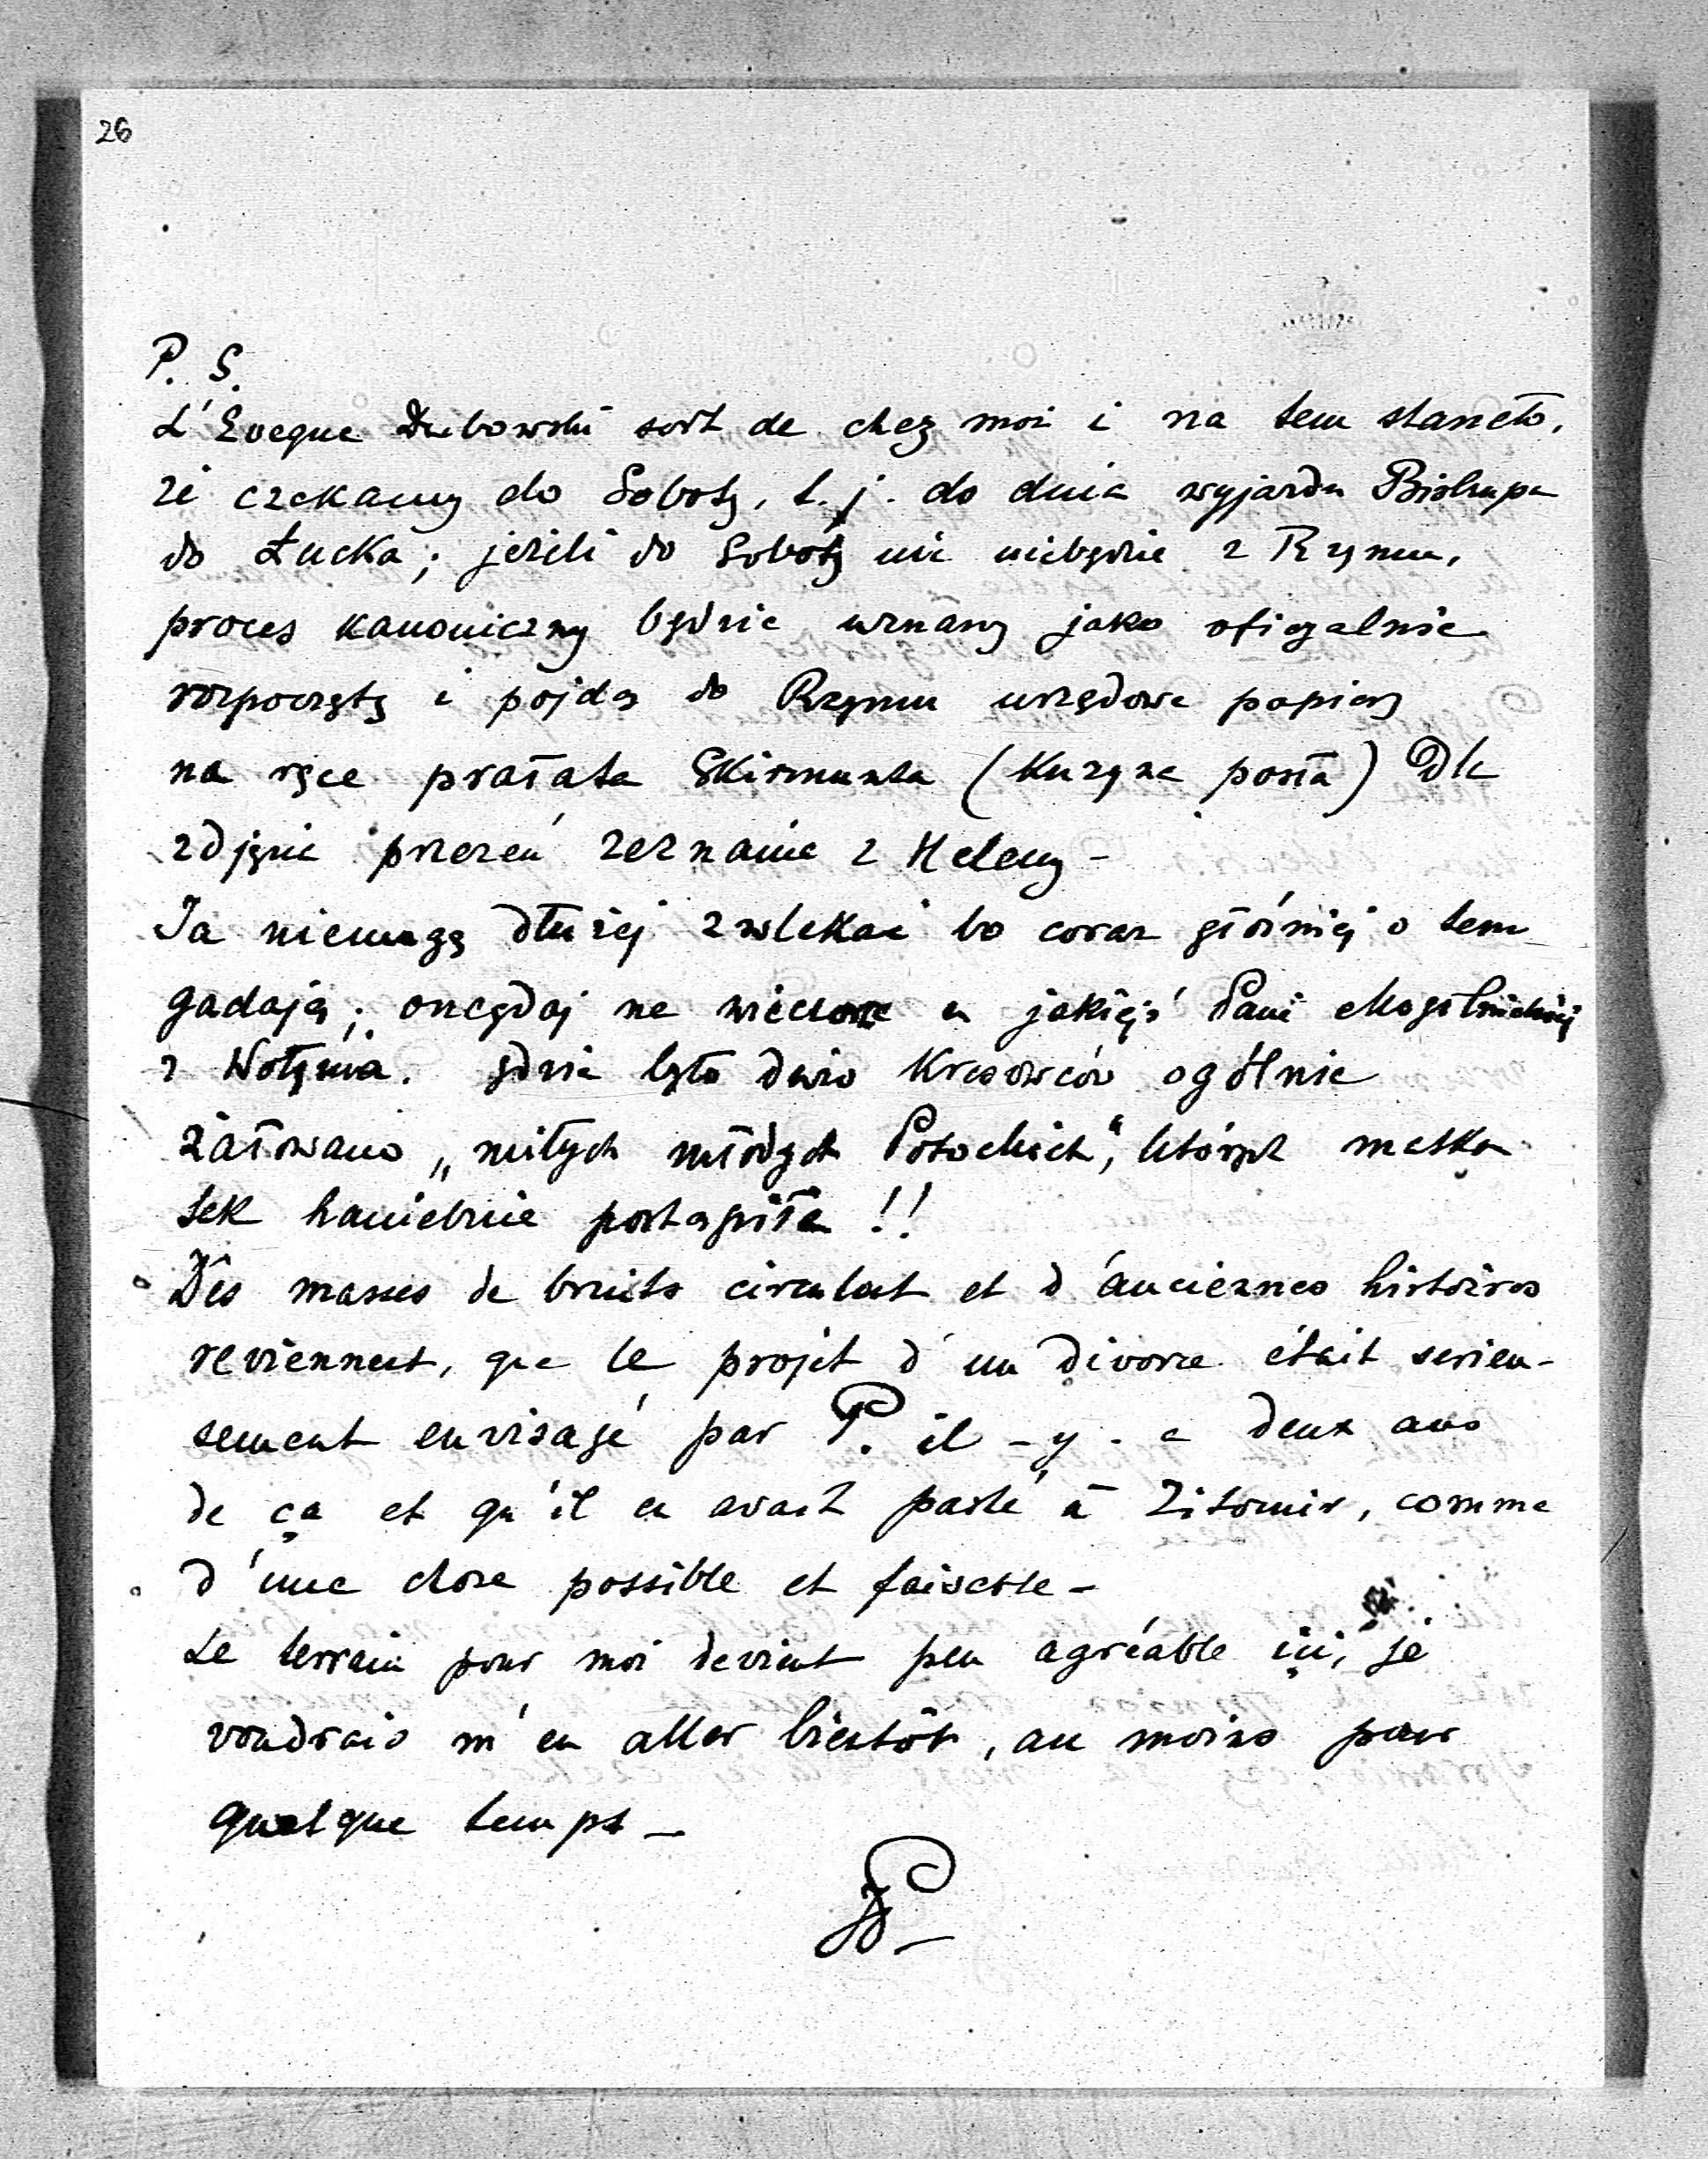 26
P. S.
L'Eveque Dubowski sort de chez moi i na tem stanęło,
że czekamy do Soboty, t. j. do dnia wyjazdu Biskupa
do Łucka; jeżeli do Soboty nic niebędzie z Rzymu,
proces kanoniczny będzie uznany jako oficjalnie
rozpoczęty i pójdą do Rzymu urzędowe papiery
na ręce prałata Skirmunta (Kuzyna posła) Dla
zdjęcia przezeń zeznania z Heleny –
Ja niemogę dłużej zwlekać bo coraz głośniej o tem
gadają; onegdaj na wieczorze u jakiejś Pani Mogilnickiej
z Wołynia. gdzie było dużo Kresowców ogólnie
żałowano „miłych młodych Potockich", których matka
tak haniebnie postąpiła !!
Des masses de bruits circulent et d'anciennes histoires
reviennent, que le projet d'un divorce était serieu-
sement envisagé par P. il - y - a deux ans
de ça et qu'il en avait parlé à Zitomir, comme
d'une chose possible et faisable –
Le terrain pour moi devient peu agréable ici, je
voudrais m'en aller bientôt, au moins pour
quelque temps –
JP –